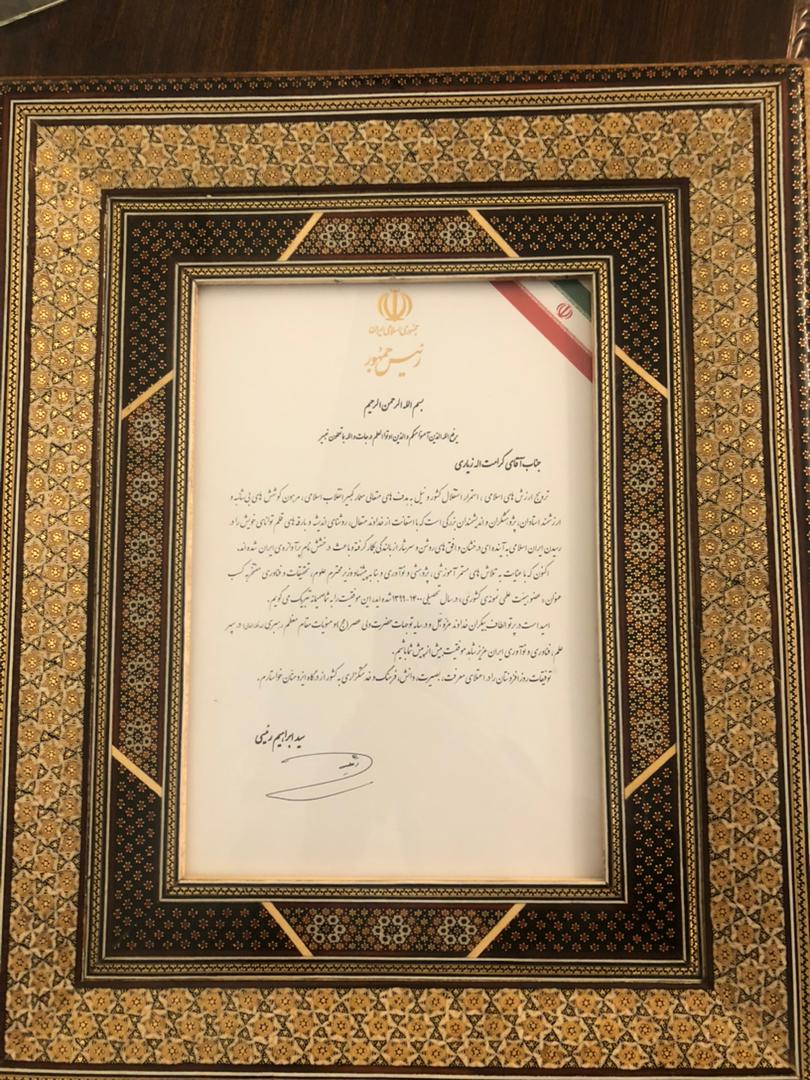 جمهوری اسلامی ایران
رئیس جمهور
بسم الله الرحمن الرحیم
یرفع الله الذین آمنوا منکم و الذین اوتوا العلم درجات و الله بما تعملون خبیر
جناب آقای کرامت اله زیاری
ترویج ارزش های اسلامی، استمرار استقلال کشور و نیل به هدف های متعالی معمار کبیر انقلاب اسلامی، مرهون کوشش های بی شائبه و
ارزشمند استادان، پژوهشگران و اندیشمندان بزرگی است که با استعانت از خداوند متعال، روشنای اندیشه و بارقه های قلم توانای خویش را در
رسیدن ایران اسلامی به آینده ای درخشان و افق های روشن و سرشار از بالندگی بکار گرفته و باعث درخشش نام پرآوازه ی ایران شده اند.
اکنون که با عنایت به تلاش های مستمر آموزشی، پژوهشی و نوآوری و بنا به پیشنهاد وزیر محترم علوم، تحقیقات و فناوری مفتخر به کسب
عنوان «عضو هیئت علمی نمونه ی کشوری» در سال تحصیلی ۱۴۰۰-۱۳۹۹ شده اید، این موفقیت را به شما صمیمانه تبریک می گویم.
امید است در پرتو الطاف بیکران خداوند عزوجل و در سایه توجهات حضرت ولی عصر (عج) و منویات مقام معظم رهبری (مدظله العالی) در سپهر
علم، فناوری و نوآوری ایران عزیز شاهد موفقیت بیش از پیش شما باشیم.
توفیقات روزافزونتان را در اعتلای معرفت، بصیرت، دانش، فرهنگ و خدمتگزاری به کشور از درگاه ایزد منان خواستارم.
سید ابراهیم رئیسی